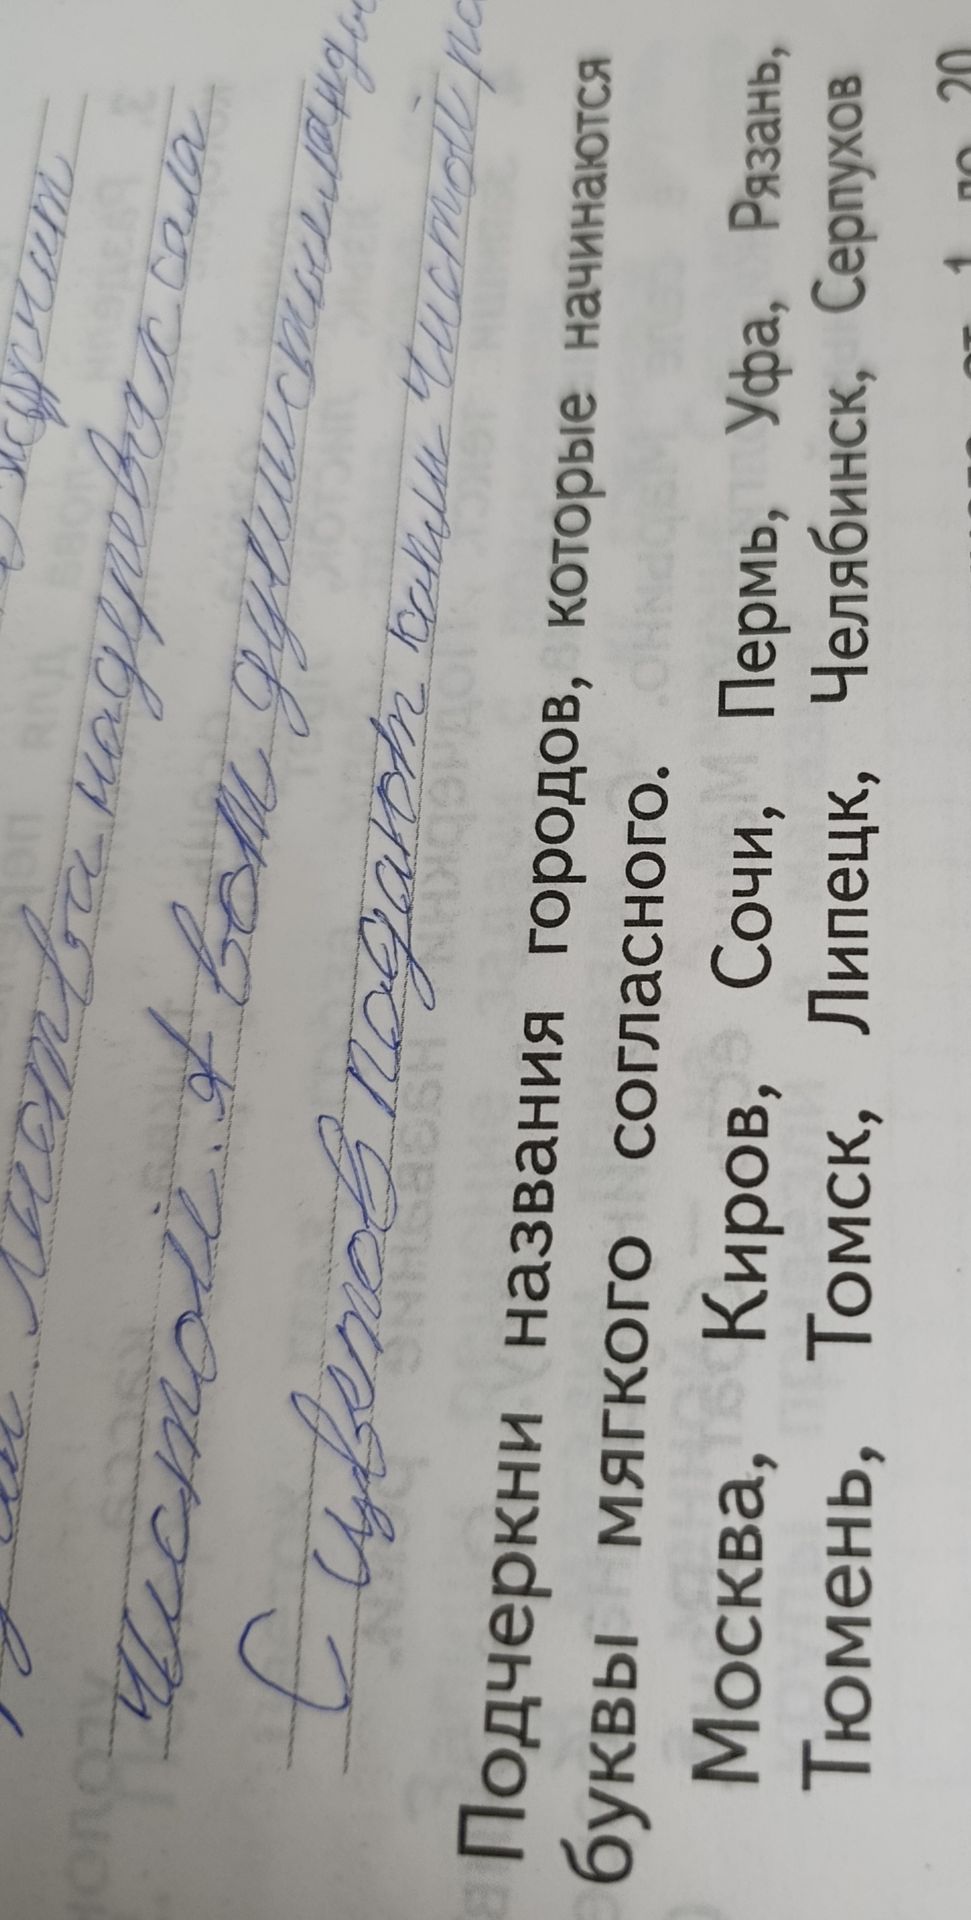 журчит
листва надрева сала
чистой. я вот душистыеланды
С цветов подают капли чистой ро
Подчеркни названия городов, которые начинаются
буквы мягкого согласного.
Москва, Киров, Сочи, Пермь, Уфа, Рязань,
Тюмень, Томск, Липецк, Челябинск, Серпухов
от 1 до 20